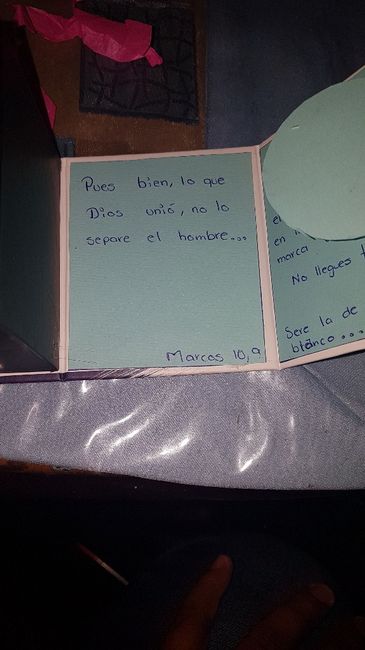 Pues bien, lo que
Dios unió, no lo
separe el hombre...
Marcos 10,9
en
marca
No llegues
Sere la de
blanco...